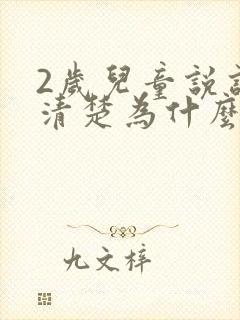 2歲兒童說
清楚為什麼
九文梓